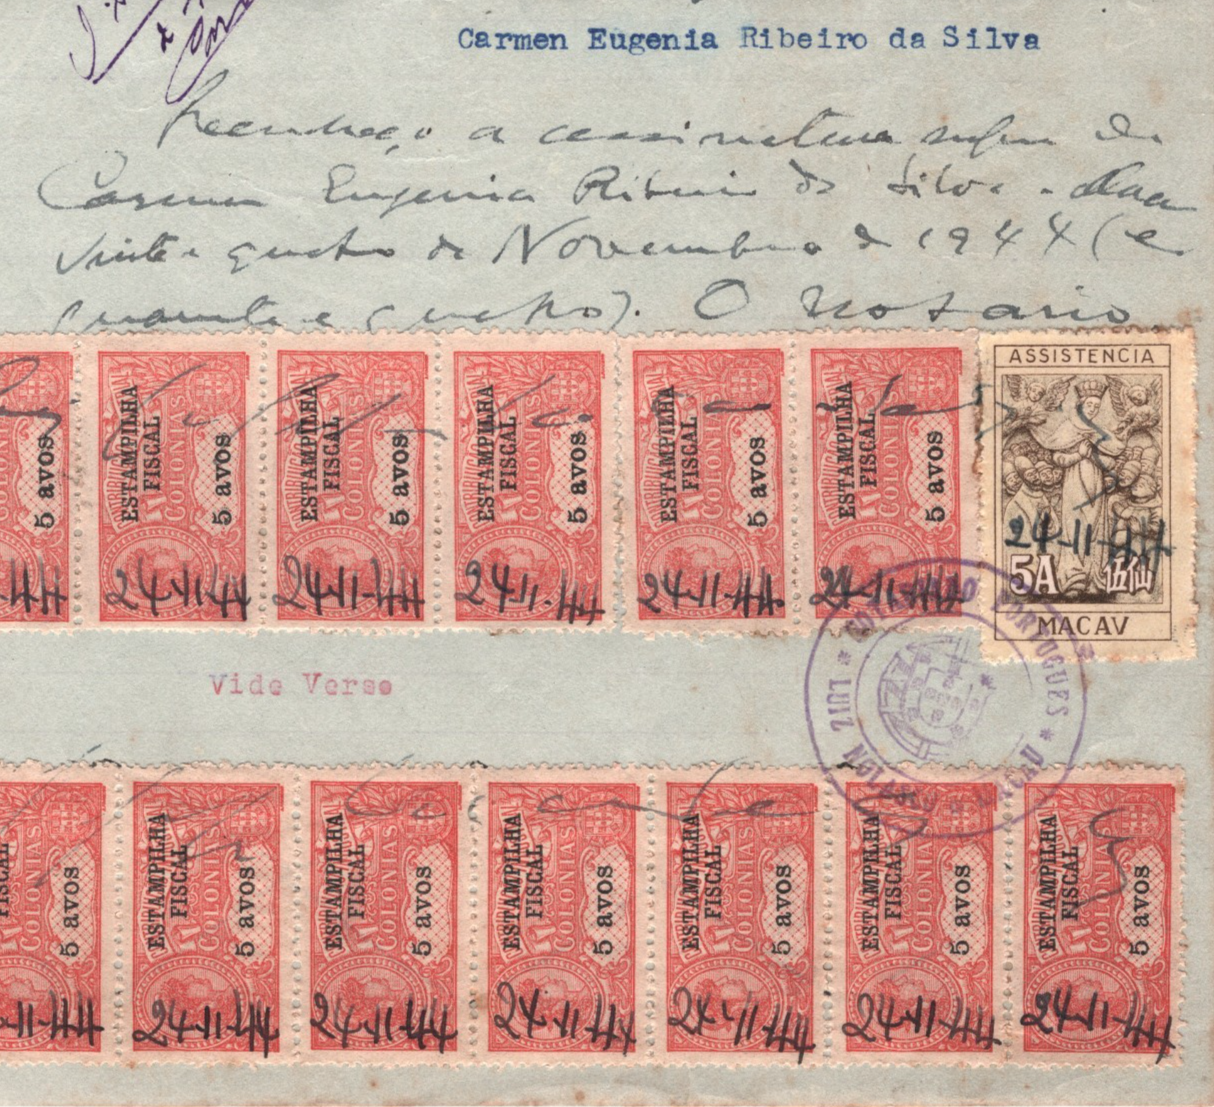 Carmen Eugenia Ribeiro da Silva
Reconheço a assinatura supra de
Carmen Eugenia Ribeiro da Silva. Macau
vinte e quatro de Novembro de 1944 (e
quarenta e quatro). O Notario
ESTAMPILHA FISCAL COLONIAS 5 avos 24-11-44
ESTAMPILHA FISCAL COLONIAS 5 avos 24-11-44
ESTAMPILHA FISCAL COLONIAS 5 avos 24-11-44
ESTAMPILHA FISCAL COLONIAS 5 avos 24-11-44
ESTAMPILHA FISCAL COLONIAS 5 avos 24-11-44
5 avos
ASSISTENCIA
24-11-44
5A 伍仙
MACAV
PORTUGUES * LUIZ
Vide Verso
FISCAL COLONIAS 5 avos -11-44
ESTAMPILHA FISCAL COLONIAS 5 avos 24-11-44
ESTAMPILHA FISCAL COLONIAS 5 avos 24-11-44
ESTAMPILHA FISCAL COLONIAS 5 avos 24-11-44
ESTAMPILHA FISCAL COLONIAS 5 avos 24-11-44
ESTAMPILHA FISCAL COLONIAS 5 avos 24-11-44
ESTAMPILHA FISCAL COLONIAS 5 avos 24-11-44